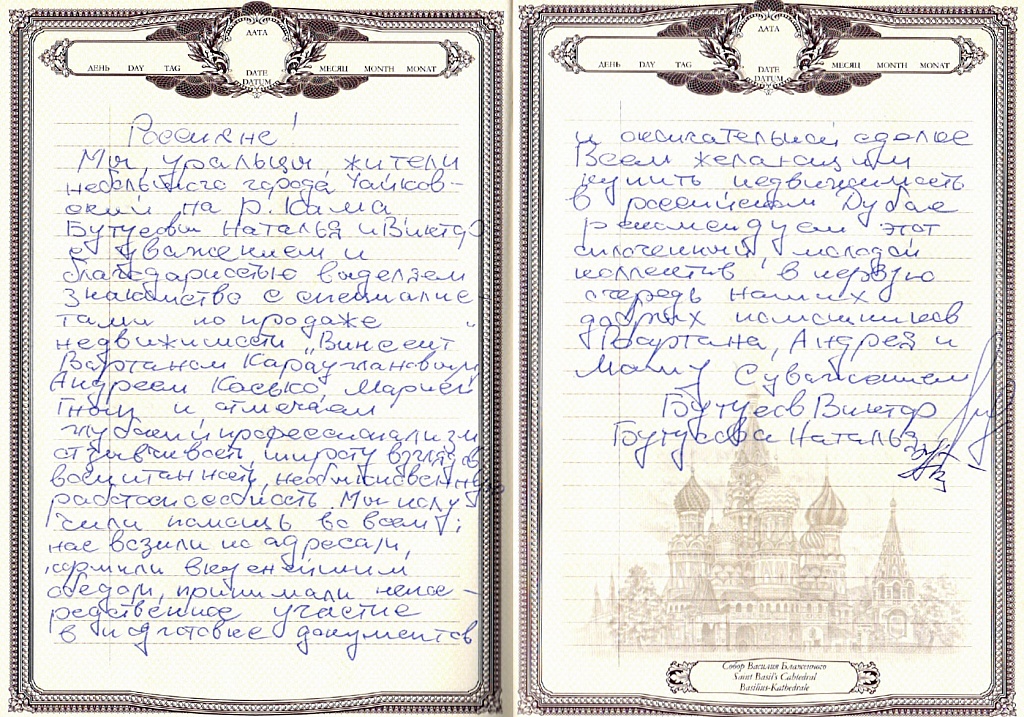 ДАТА
ДЕНЬ DAY TAG DATE DATUM МЕСЯЦ MONTH MONAT
Россияне!
Мы, уральцы, жители
небольшого города Чайков-
ский на р. Кама
Бутусовы Наталья и Виктор
с уважением и
благодарностью выделяем
знакомство с специалис-
тами по продаже
недвижимости „Винсент"
Вартаном Караутлановым
Андреем Касько Марией
Гныш и отмечаем
глубокий профессионализм
отзывчивость, широту взглядов
воспитанность, необыкновенную
работоспособность Мы полу
чили помощь во всем;
нас возили по адресам,
кормили вкуснейшим
обедом, принимали непос-
редственное участие
в подготовке документов
ДАТА
ДЕНЬ DAY TAG DATE DATUM МЕСЯЦ MONTH MONAT
и окончательной сделке
Всем желающим
купить недвижимость
в российском Дубае
рекомендуем этот
сплоченный, молодой
коллектив в первую
очередь наших
добрых помощников
Вартана, Андрея и
Машу С уважением
Бутусов Виктор
Бутусова Наталья
Собор Василия Блаженного
Saint Basil's Cathedral
Basilius-Kathedrale